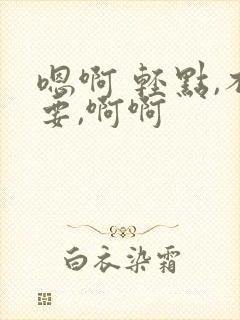 嗯啊 輕點,不
要,啊啊
白衣染霜